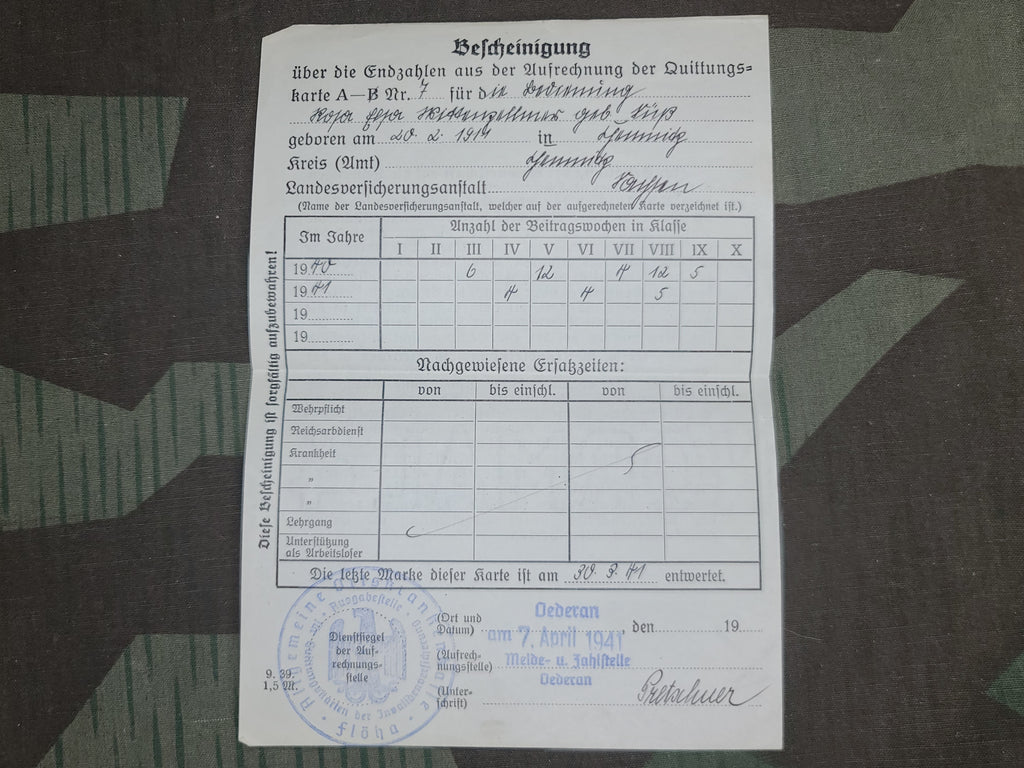 Bescheinigung
über die Endzahlen aus der Aufrechnung der Quittungs=
karte A—B Nr. 7 für die Bedienung
Rosa geb. Süß
geboren am 20. 2. 1914 in Chemnitz
Kreis (Amt) Chemnitz
Landesversicherungsanstalt Sachsen
(Name der Landesversicherungsanstalt, welcher auf der aufgerechneten Karte verzeichnet ist.)
Im Jahre Anzahl der Beitragswochen in Klasse
I II III IV V VI VII VIII IX X
1940 6 12 4 12 5
1941 4 4 5
19
19
Nachgewiesene Ersatzzeiten:
von bis einschl. von bis einschl.
Wehrpflicht
Reichsarbdienst
Krankheit
"
"
Lehrgang
Unterstützung
als Arbeitsloser
Die letzte Marke dieser Karte ist am 30. 3. 41 entwertet.
Diese Bescheinigung ist sorgfältig aufzubewahren!
Allgemeine Ortskrankenkasse
Flöha
Ausgabestelle
der Invalidenversicherung
Dienstsiegel
der Auf-
rechnungs-
stelle
(Ort und
Datum) den 19
Oederan
am 7. April 1941
(Aufrech-
nungsstelle)
Melde- u. Zahlstelle
Oederan
(Unter-
schrift) Pretschner
9. 39.
1,5 M.